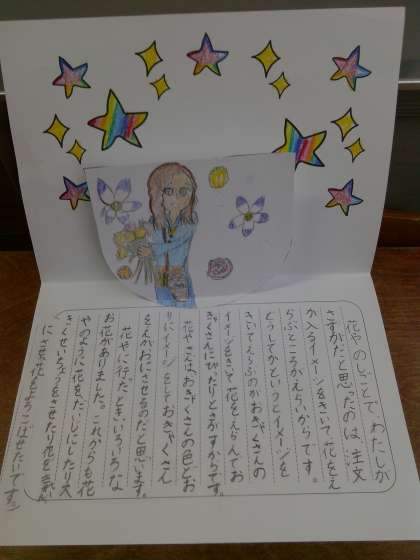 花やのしごとで、わたしが
さすがだと思ったのは、注文
が入るイメージをきいて花をえ
らぶところがえらいからです。
どうしてかというとイメージを
きいてえらぶのがおきゃくさんの
イメージをきいて花をえらんでお
きゃくさんにぴったりとさがすからです。
花やさんはおきゃくさんの色とお
りにイメージをしておきゃくさん
をえがおにさせるのだと思います。
花やに行ったとき、いろいろな
お花がありました。これからも花
やのように花をだいじにしたり大
きくせいちょうをさせたり花を
にさせ花をよろこばせたいです。